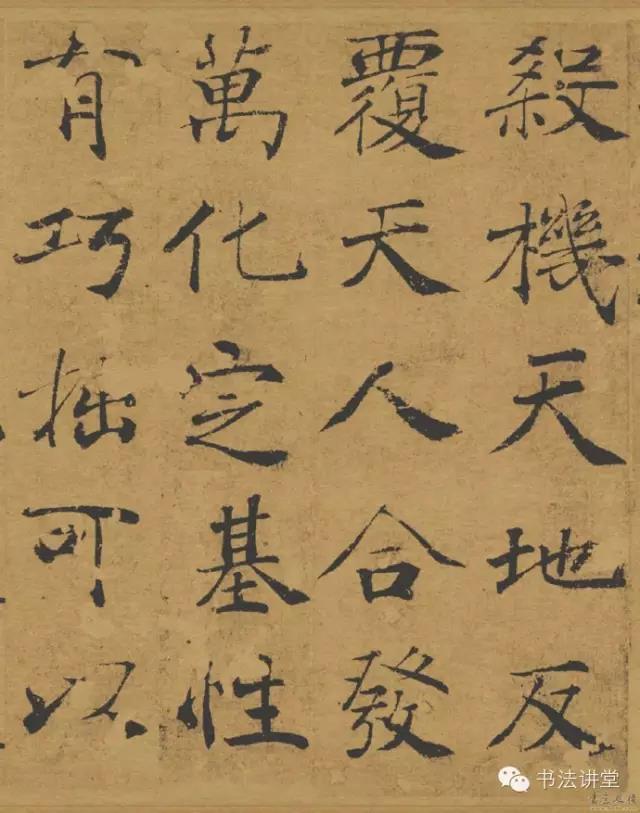 殺機天地反
覆天人合發
萬化定基性
有巧拙可以
书法讲堂